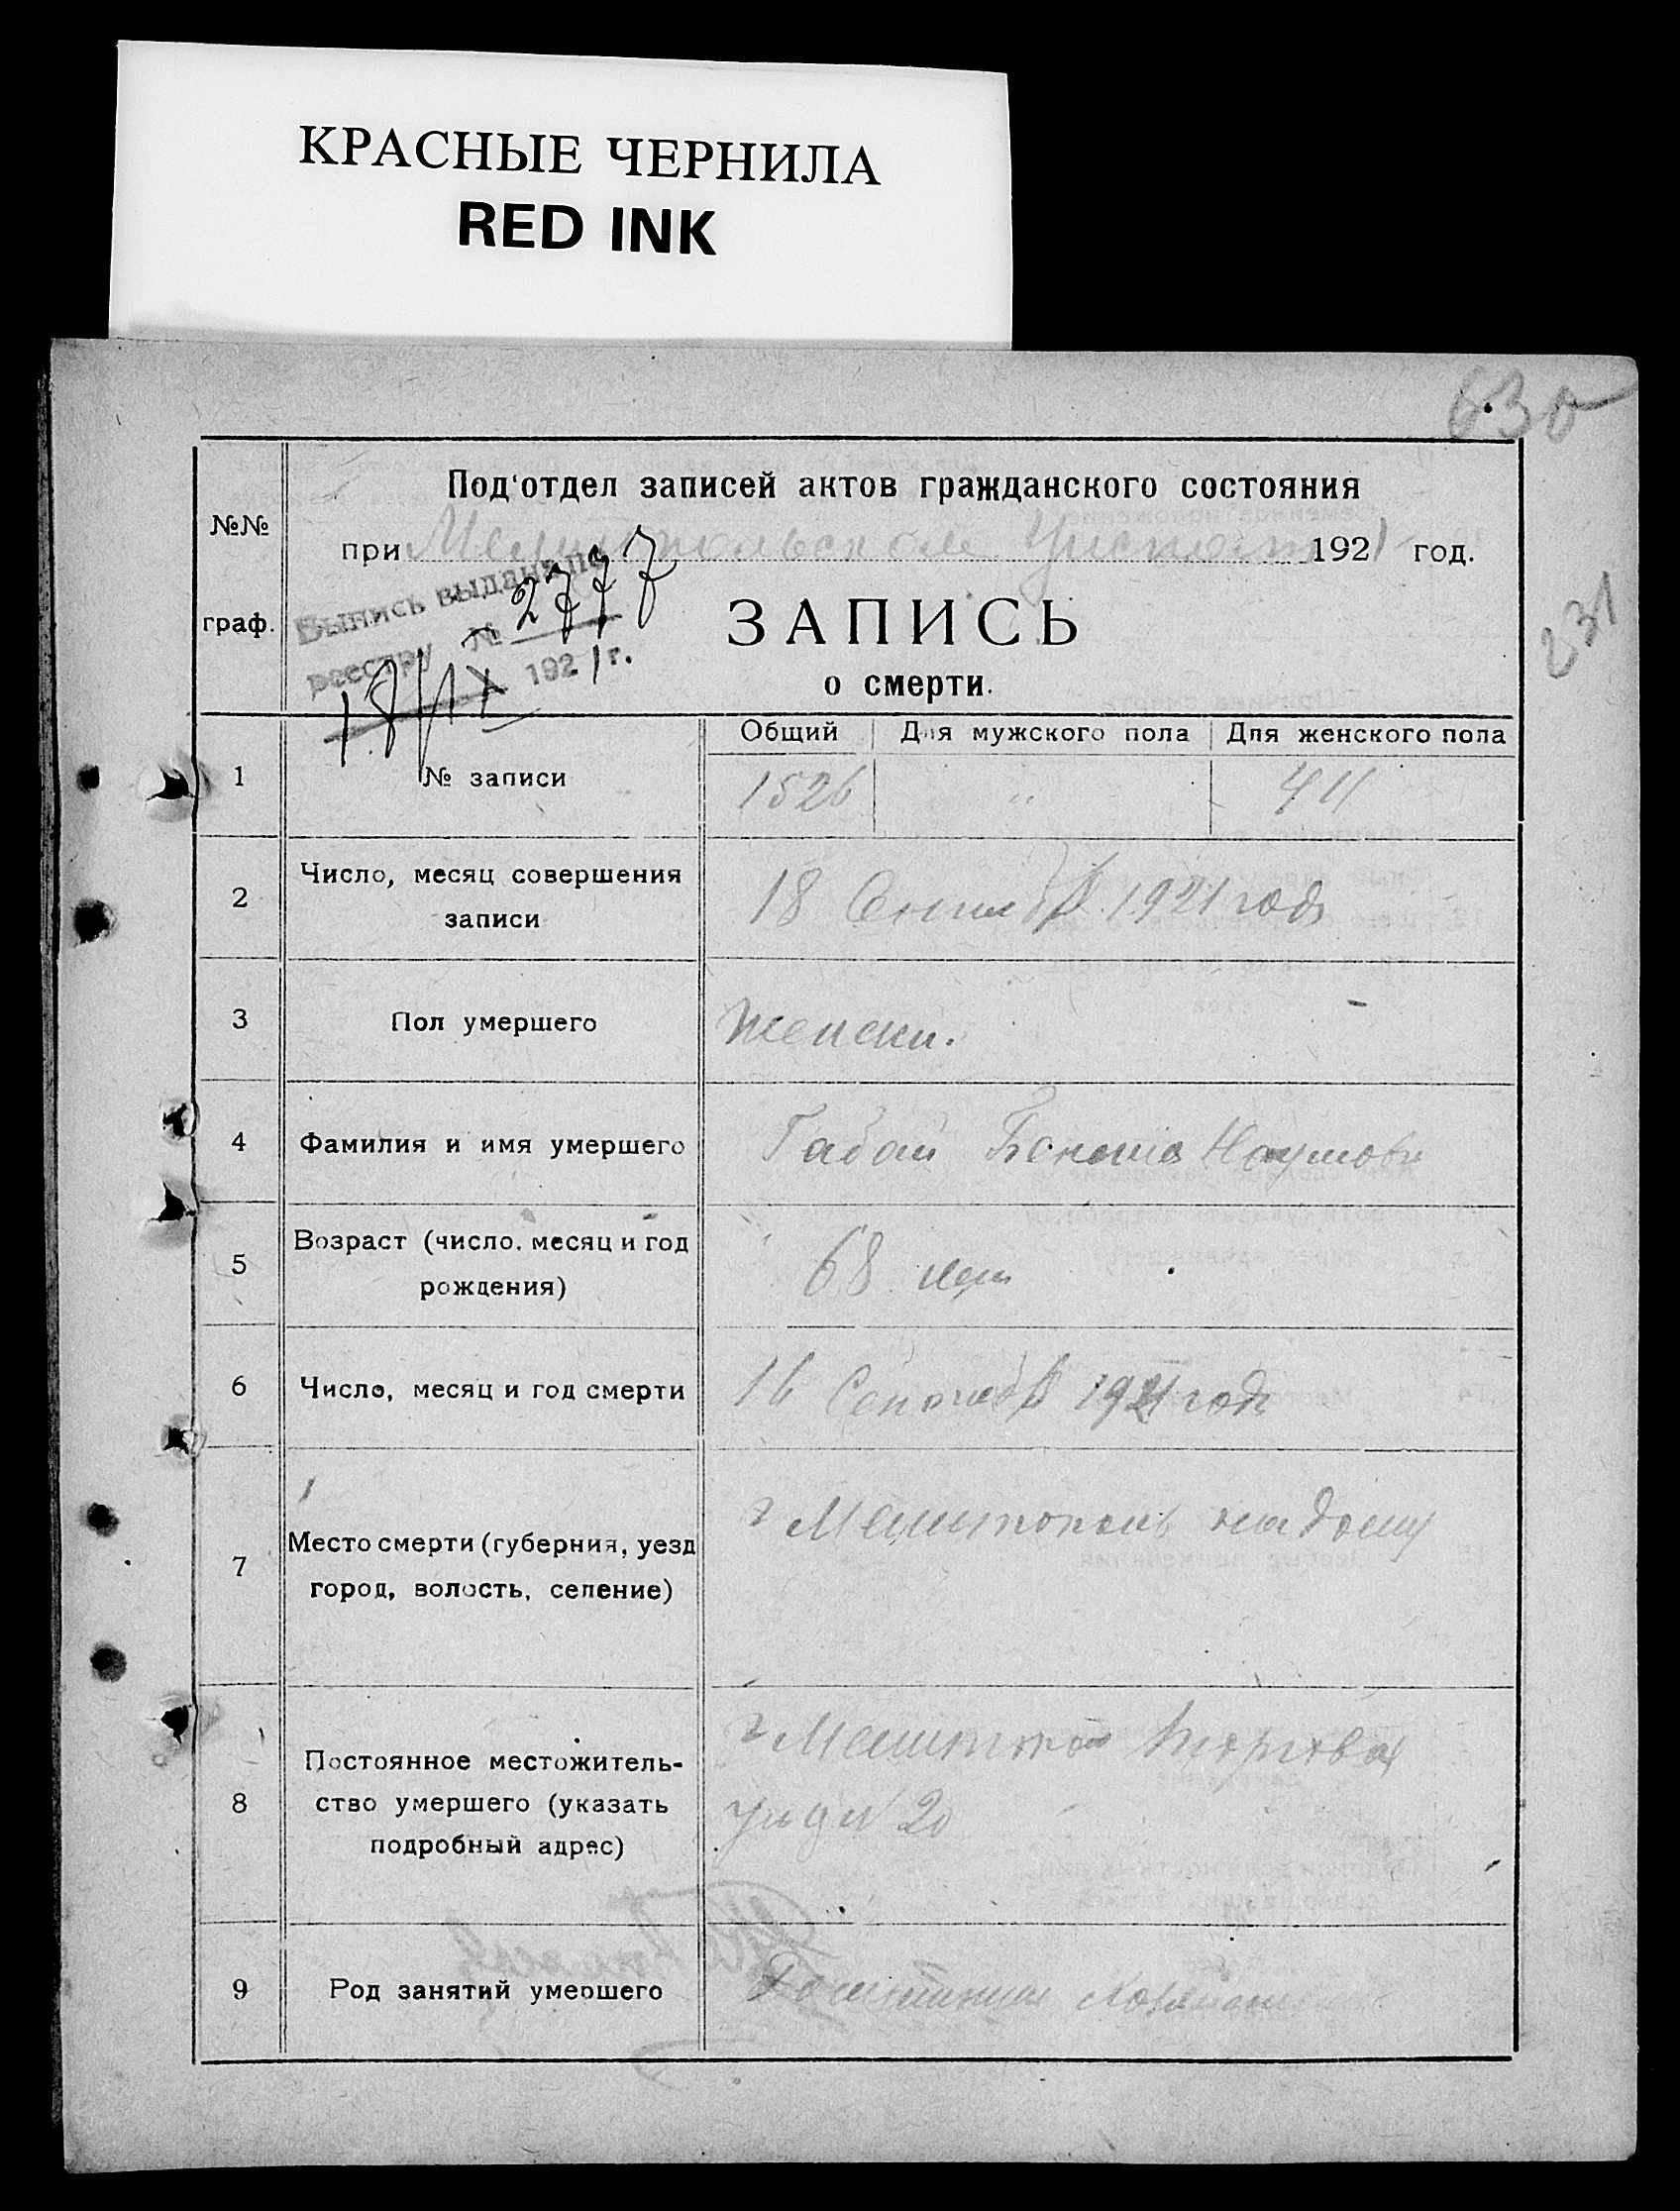 КРАСНЫЕ ЧЕРНИЛА
RED INK
630
Под'отдел записей актов гражданского состояния
№№
при Мелитопольском 1921 год.
граф.
Выпись выдана по
реестру № 2777
18/IX 1921 г.
231
ЗАПИСЬ
о смерти.
Общий Для мужского пола Для женского пола
1 № записи 1526 " 411
2 Число, месяц совершения
записи
18 Сентяб 1921 года
3 Пол умершего женски.
4 Фамилия и имя умершего Габай Наумовн
5 Возраст (число, месяц и год
рождения)
68 лет
6 Число, месяц и год смерти 16 Сентяб 1921 года
7 Место смерти (губерния, уезд
город, волость, селение)
г Мелитополь на дому
8 Постоянное местожитель-
ство умершего (указать
подробный адрес)
г Мелитопол Торговая
20
9 Род занятий умершего